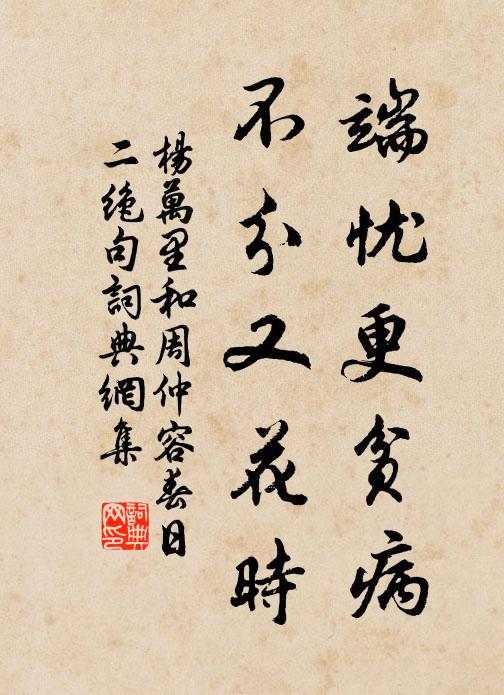 端忧更貧病
不分又花時
楊萬里和周仲容春日
二絶句詞典網集
詞典
网印